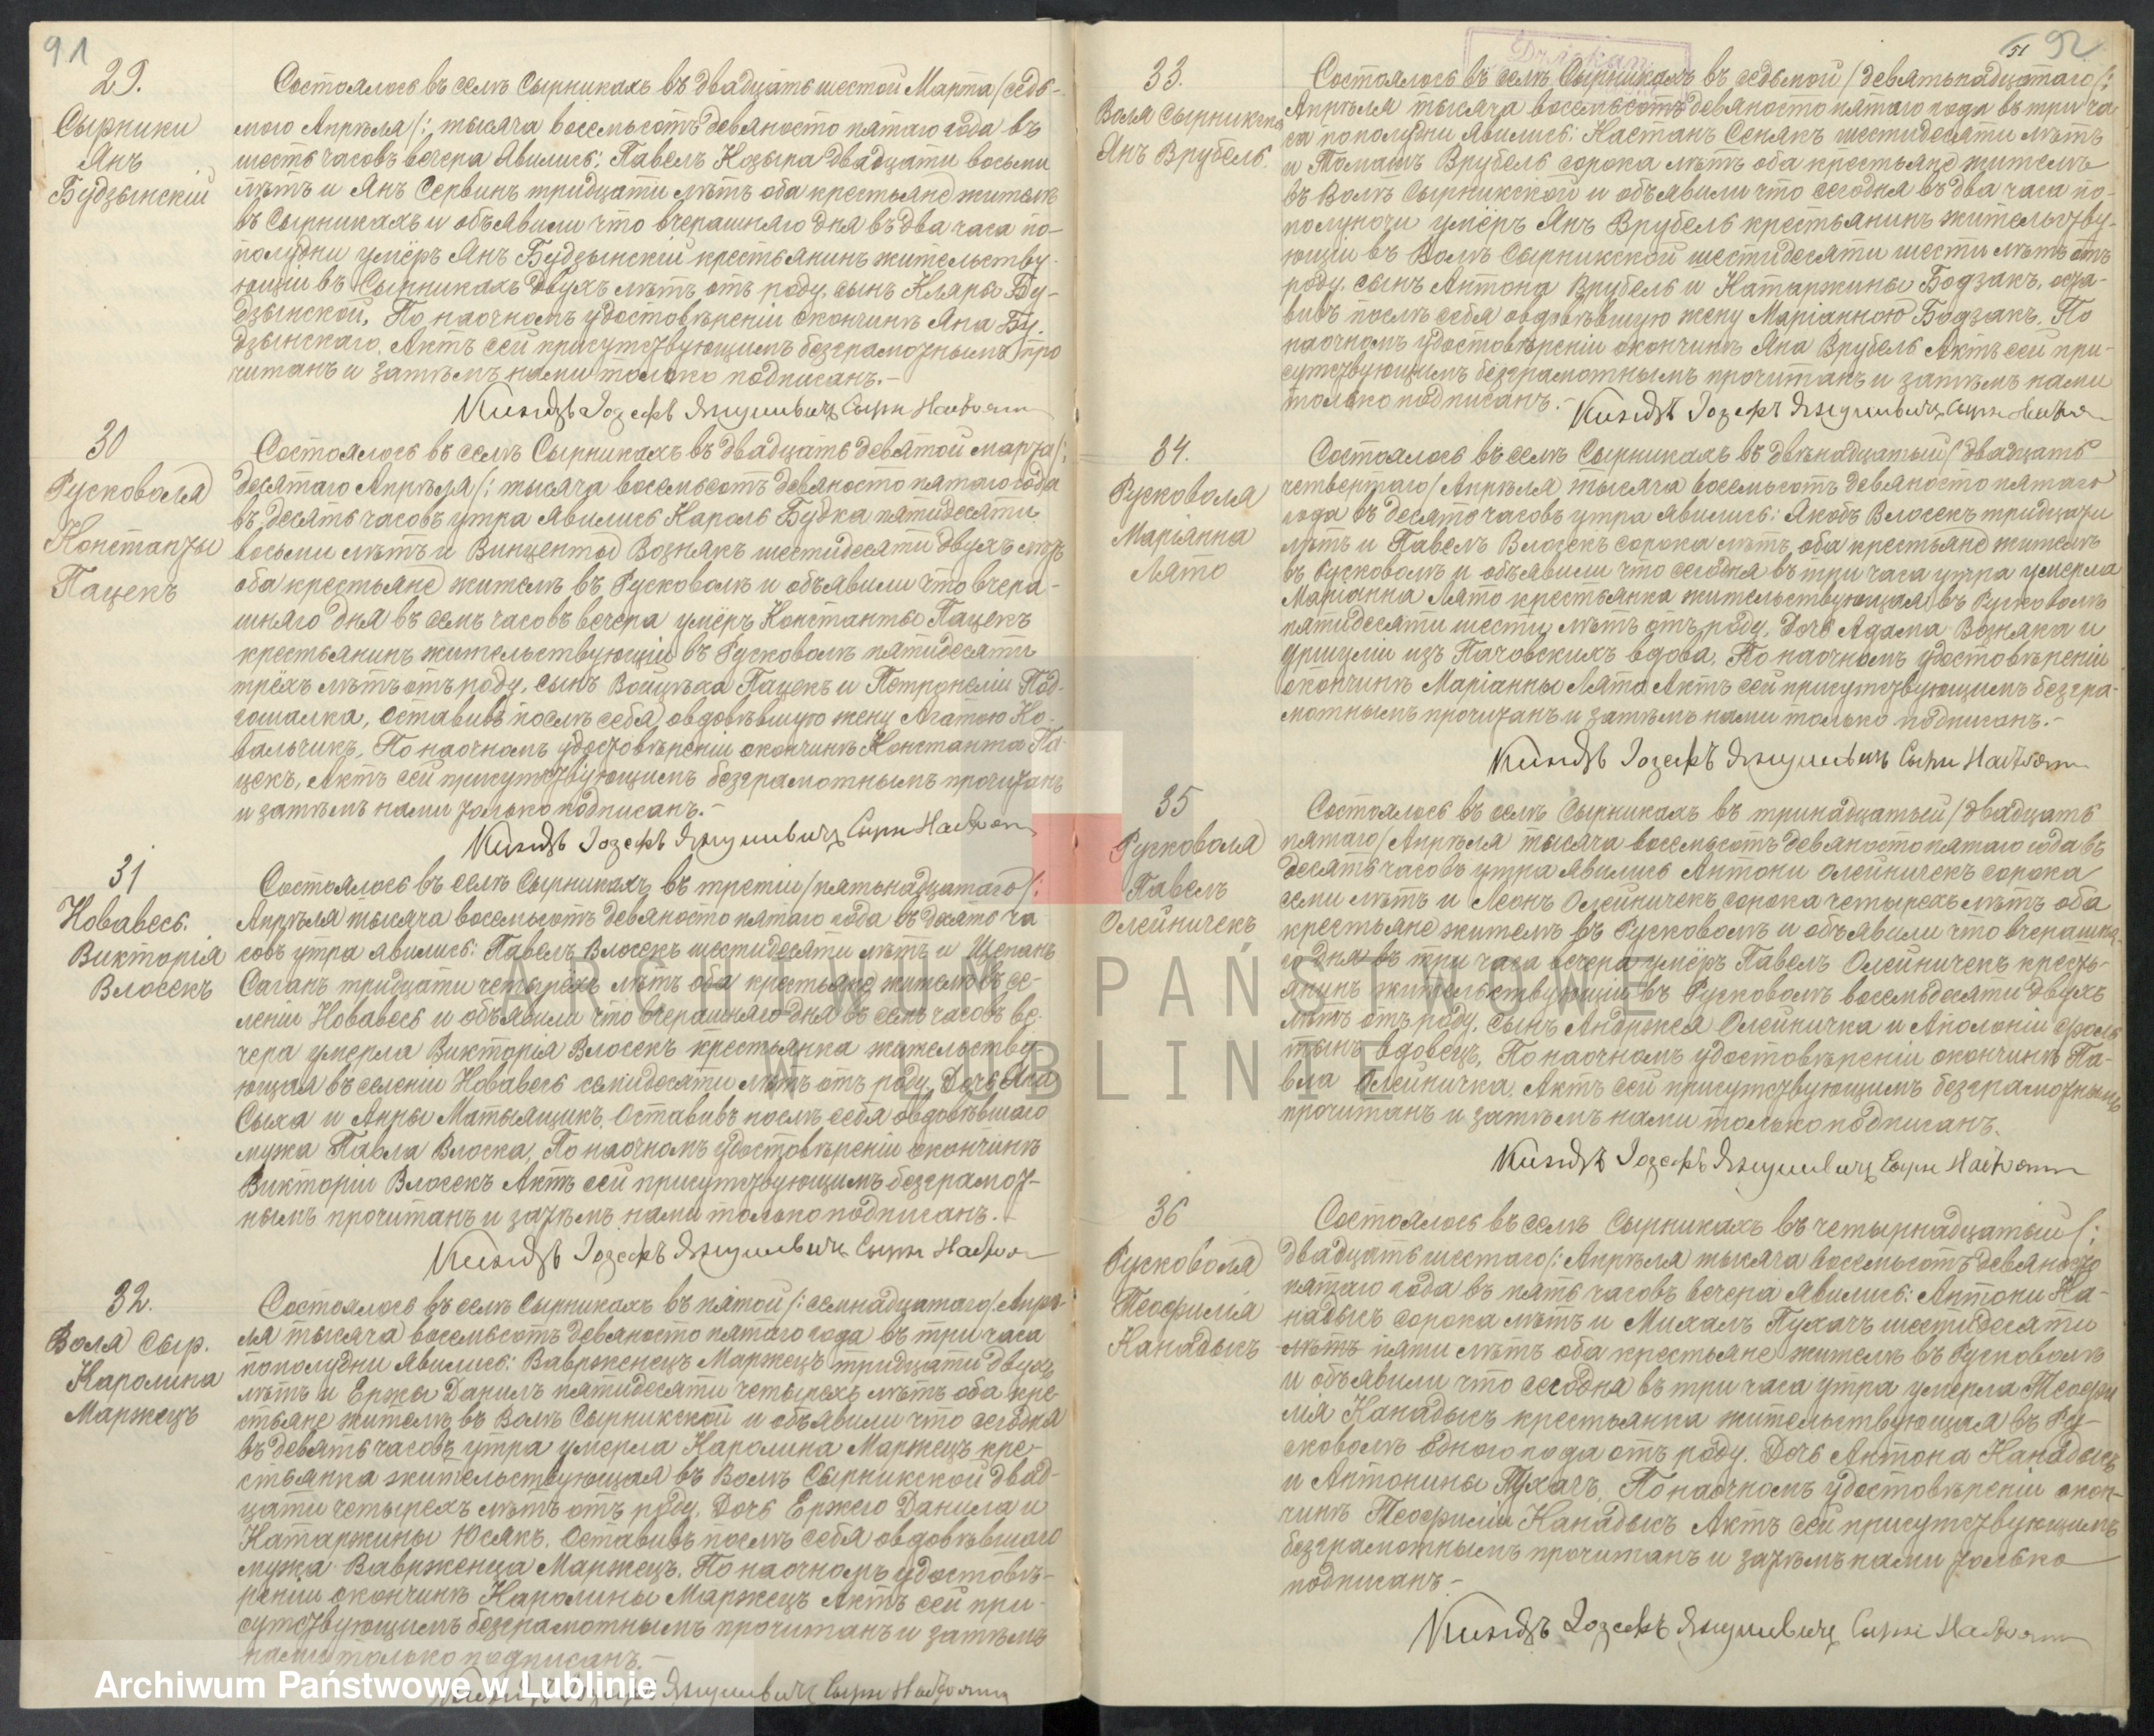 91
29.
Сырники
Янъ
Будзынскій
Состоялось въ селѣ Сырникахъ въ двадцать шестой Марта /седь-
мого Апрѣля/: тысяча восемьсотъ девяносто пятаго года въ
шесть часовъ вечера явились: Павелъ Козыра двадцати восьми
лѣтъ и Янъ Сервинъ тридцати лѣтъ оба крестьяне жители
въ Сырникахъ и объявили что вчерашняго дня въ два часа по-
полудни умёръ Янъ Будзынскій крестьянинъ жительству-
ющій въ Сырникахъ двухъ лѣтъ отъ роду, сынъ Кляры Бу-
дзынской. По наочномъ удостовѣреніи окончинѣ Яна Бу-
дзынскаго. Актъ сей присутствующимъ безграмотнымъ про
читанъ и затѣмъ нами только подписанъ.-
Ксендзъ Іозефъ
30
Русковоля
Константы
Пацекъ
Состоялось въ селѣ Сырникахъ въ двадцать девятой марта/:
десятаго Апрѣля/: тысяча восемьсотъ девяносто пятаго года
въ десять часовъ утра явились Кароль Будка пятидесяти
восьми лѣтъ и Винценты Вознякъ шестидесяти двухъ лѣтъ
оба крестьяне жителѣ въ Русковолѣ и объявили что вчера-
шняго дня въ семь часовъ вечера умёръ Константы Пацекъ
крестьянинъ жительствующій въ Русковолѣ пятидесяти
трёхъ лѣтъ отъ роду, сынъ Войцѣха Пацекъ и Петронеліи Под-
гошалка, оставивъ послѣ себя овдовѣвшую жену Агатою Ко-
вальчикъ. По наочномъ удостовѣреніи окончинѣ Константа Па-
цекъ, Актъ сей присутствующимъ безграмотнымъ прочитанъ
и затѣмъ нами только подписанъ.-
Ксендзъ Іозефъ
31
Новавесь.
Викторія
Влосекъ
Состоялось въ селѣ Сырникахъ въ третій /пятьнадцатаго/:
Апрѣля тысяча восемьсотъ девяносто пятаго года въ десять ча
совъ утра явились: Павелъ Влосекъ шестидесяти лѣтъ и Щепанъ
Саганъ тридцати четырехъ лѣтъ оба крестьяне жителѣ въ се-
леніи Новавесь и объявили что вчерашняго дня въ семь часовъ ве-
чера умерла Викторія Влосекъ крестьянка жительству
ющая въ селеніи Новавесь семидесяти лѣтъ отъ роду, Дочь Яна
Сыха и Анны Матыящикъ, Оставивъ послѣ себя овдовѣвшаго
мужа Павла Влоска, По наочномъ удостовѣреніи окончинѣ
Викторіи Влосекъ Актъ сей присутствующимъ безграмот-
нымъ прочитанъ и затѣмъ нами только подписанъ.-
Ксендзъ Іозефъ
32.
Воля Сыр.
Каролина
Маржецъ
Состоялось въ селѣ Сырникахъ въ пятой /: семнадцатаго/ Апрѣ-
ля тысяча восемьсотъ девяносто пятаго года въ три часа
пополудни явились: Вавржёнецъ Маржецъ тридцати двухъ
лѣтъ и Ержы Данилъ пятидесяти четырехъ лѣтъ оба кре
стьяне жителѣ въ Волѣ Сырникской и объявили что сегодня
въ девять часовъ утра умерла Каролина Маржецъ кре-
стьянка жительствующая въ Волѣ Сырникской двад-
цати четырехъ лѣтъ отъ роду, Дочь Ержего Данила и
Катаржины Юсякъ, Оставивъ послѣ себя овдовѣвшаго
мужа Вавржёнца Маржецъ. По наочномъ удостовѣ-
реніи окончинѣ Каролины Маржецъ Актъ сей при-
сутствующимъ безграмотнымъ прочитанъ и затѣмъ
нами только подписанъ.-
Ксендзъ Іозефъ
51 92
33.
Воля Сырникска
Янъ Врубель.
Состоялось въ селѣ Сырникахъ въ седьмой /девятьнадцатаго/:
Апрѣля тысяча восемьсотъ девяносто пятаго года въ три ча
са пополудни явились: Кастанъ Сенякъ шестидесяти лѣтъ
и Томашъ Врубель сорока лѣтъ оба крестьяне жителѣ
въ Волѣ Сырникской и объявили что сегодня въ два часа по-
полуночи умёръ Янъ Врубель крестьянинъ жительству-
ющій въ Волѣ Сырникской шестидесяти шести лѣтъ отъ
роду, сынъ Антона Врубель и Катаржины Бодзакъ, оста-
вивъ послѣ себя овдовѣвшую жену Маріанною Бодзакъ. По
наочномъ удостовѣреніи окончинѣ Яна Врубель Актъ сей при-
сутствующимъ безграмотнымъ прочитанъ и затѣмъ нами
только подписанъ.-
Ксендзъ Іозефъ
34.
Русковоля
Маріанна
Лято
Состоялось въ селѣ Сырникахъ въ двѣнадцатый /двадцать
четвертаго/ Апрѣля тысяча восемьсотъ девяносто пятаго
года въ десять часовъ утра явились: Якобъ Влосекъ тридцати
лѣтъ и Павелъ Влосекъ сорока лѣтъ, оба крестьяне жителѣ
въ Русковолѣ и объявили что сегодня въ три часа утра умерла
Маріанна Лято крестьянка жительствующая въ Русковолѣ
пятидесяти шести лѣтъ отъ роду, Дочь Адама Возняка и
Уршули изъ Пачовскихъ вдова. По наочномъ удостовѣреніи
окончинѣ Маріанны Лято Актъ сей присутствующимъ безгра-
мотнымъ прочитанъ и затѣмъ нами только подписанъ.-
Ксендзъ Іозефъ
35
Русковоля
Павелъ
Олейничекъ
Состоялось въ селѣ Сырникахъ въ тринадцатый /двадцать
пятаго/ Апрѣля тысяча восемьсотъ девяносто пятаго года въ
десять часовъ утра явились Антони Олейничекъ сорока
семи лѣтъ и Леонъ Олейничекъ сорока четырехъ лѣтъ оба
крестьяне жителѣ въ Русковолѣ и объявили что вчерашня-
го дня въ три часа вечера умёръ Павелъ Олейничекъ кресть-
янинъ жительствующій въ Русковолѣ восемьдесяти двухъ
лѣтъ отъ роду, сынъ Анджея Олейничка и Аполоніи
вдовецъ, По наочномъ удостовѣреніи окончинѣ Па-
вла Олейничка, Актъ сей присутствующимъ безграмотнымъ
прочитанъ и затѣмъ нами только подписанъ.
Ксендзъ Іозефъ
36
Русковоля
Теофилія
Канадысъ
Состоялось въ селѣ Сырникахъ въ четырнадцатый/:
двадцать шестаго/: Апрѣля тысяча восемьсотъ девяносто
пятаго года въ пять часовъ вечера явились: Антони Ка-
надысъ сорока лѣтъ и Михалъ Пухачъ шестидесяти
лѣтъ пяти лѣтъ оба крестьяне жителѣ въ Русковолѣ
и объявили что сегодня въ три часа утра умерла Теофи
лія Канадысъ крестьянка жительствующая въ Ру-
сковолѣ одного года отъ роду. Дочь Антона Канадысъ
и Антонины Пухачъ. По наочномъ удостовѣреніи окон-
чинѣ Теофиліи Канадысъ Актъ сей присутствующимъ
безграмотнымъ прочитанъ и затѣмъ нами только
подписанъ.-
Ксендзъ Іозефъ
ARCHIWUM PAŃSTWOWE
W LUBLINIE
Archiwum Państwowe w Lublinie